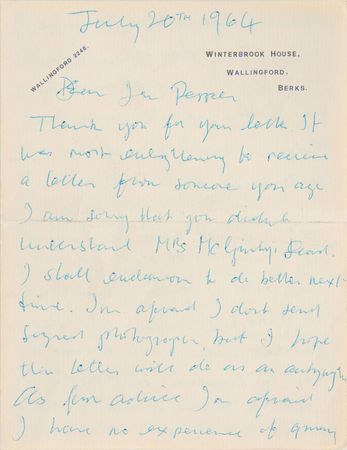 July 20TH 1964
WALLINGFORD 2248.
WINTERBROOK HOUSE,
WALLINGFORD.
BERKS.
Dear Ian Pepper
Thank you for your letter It
was most to receive
a letter from someone your age
I am sorry that you didn't
understand Mrs McGinty's Dead.
I shall endeavour to do better next
time. I'm afraid I don't send
signed photographs, but I hope
this letter will do as an autograph
As for advice I'm afraid
I have no experience of